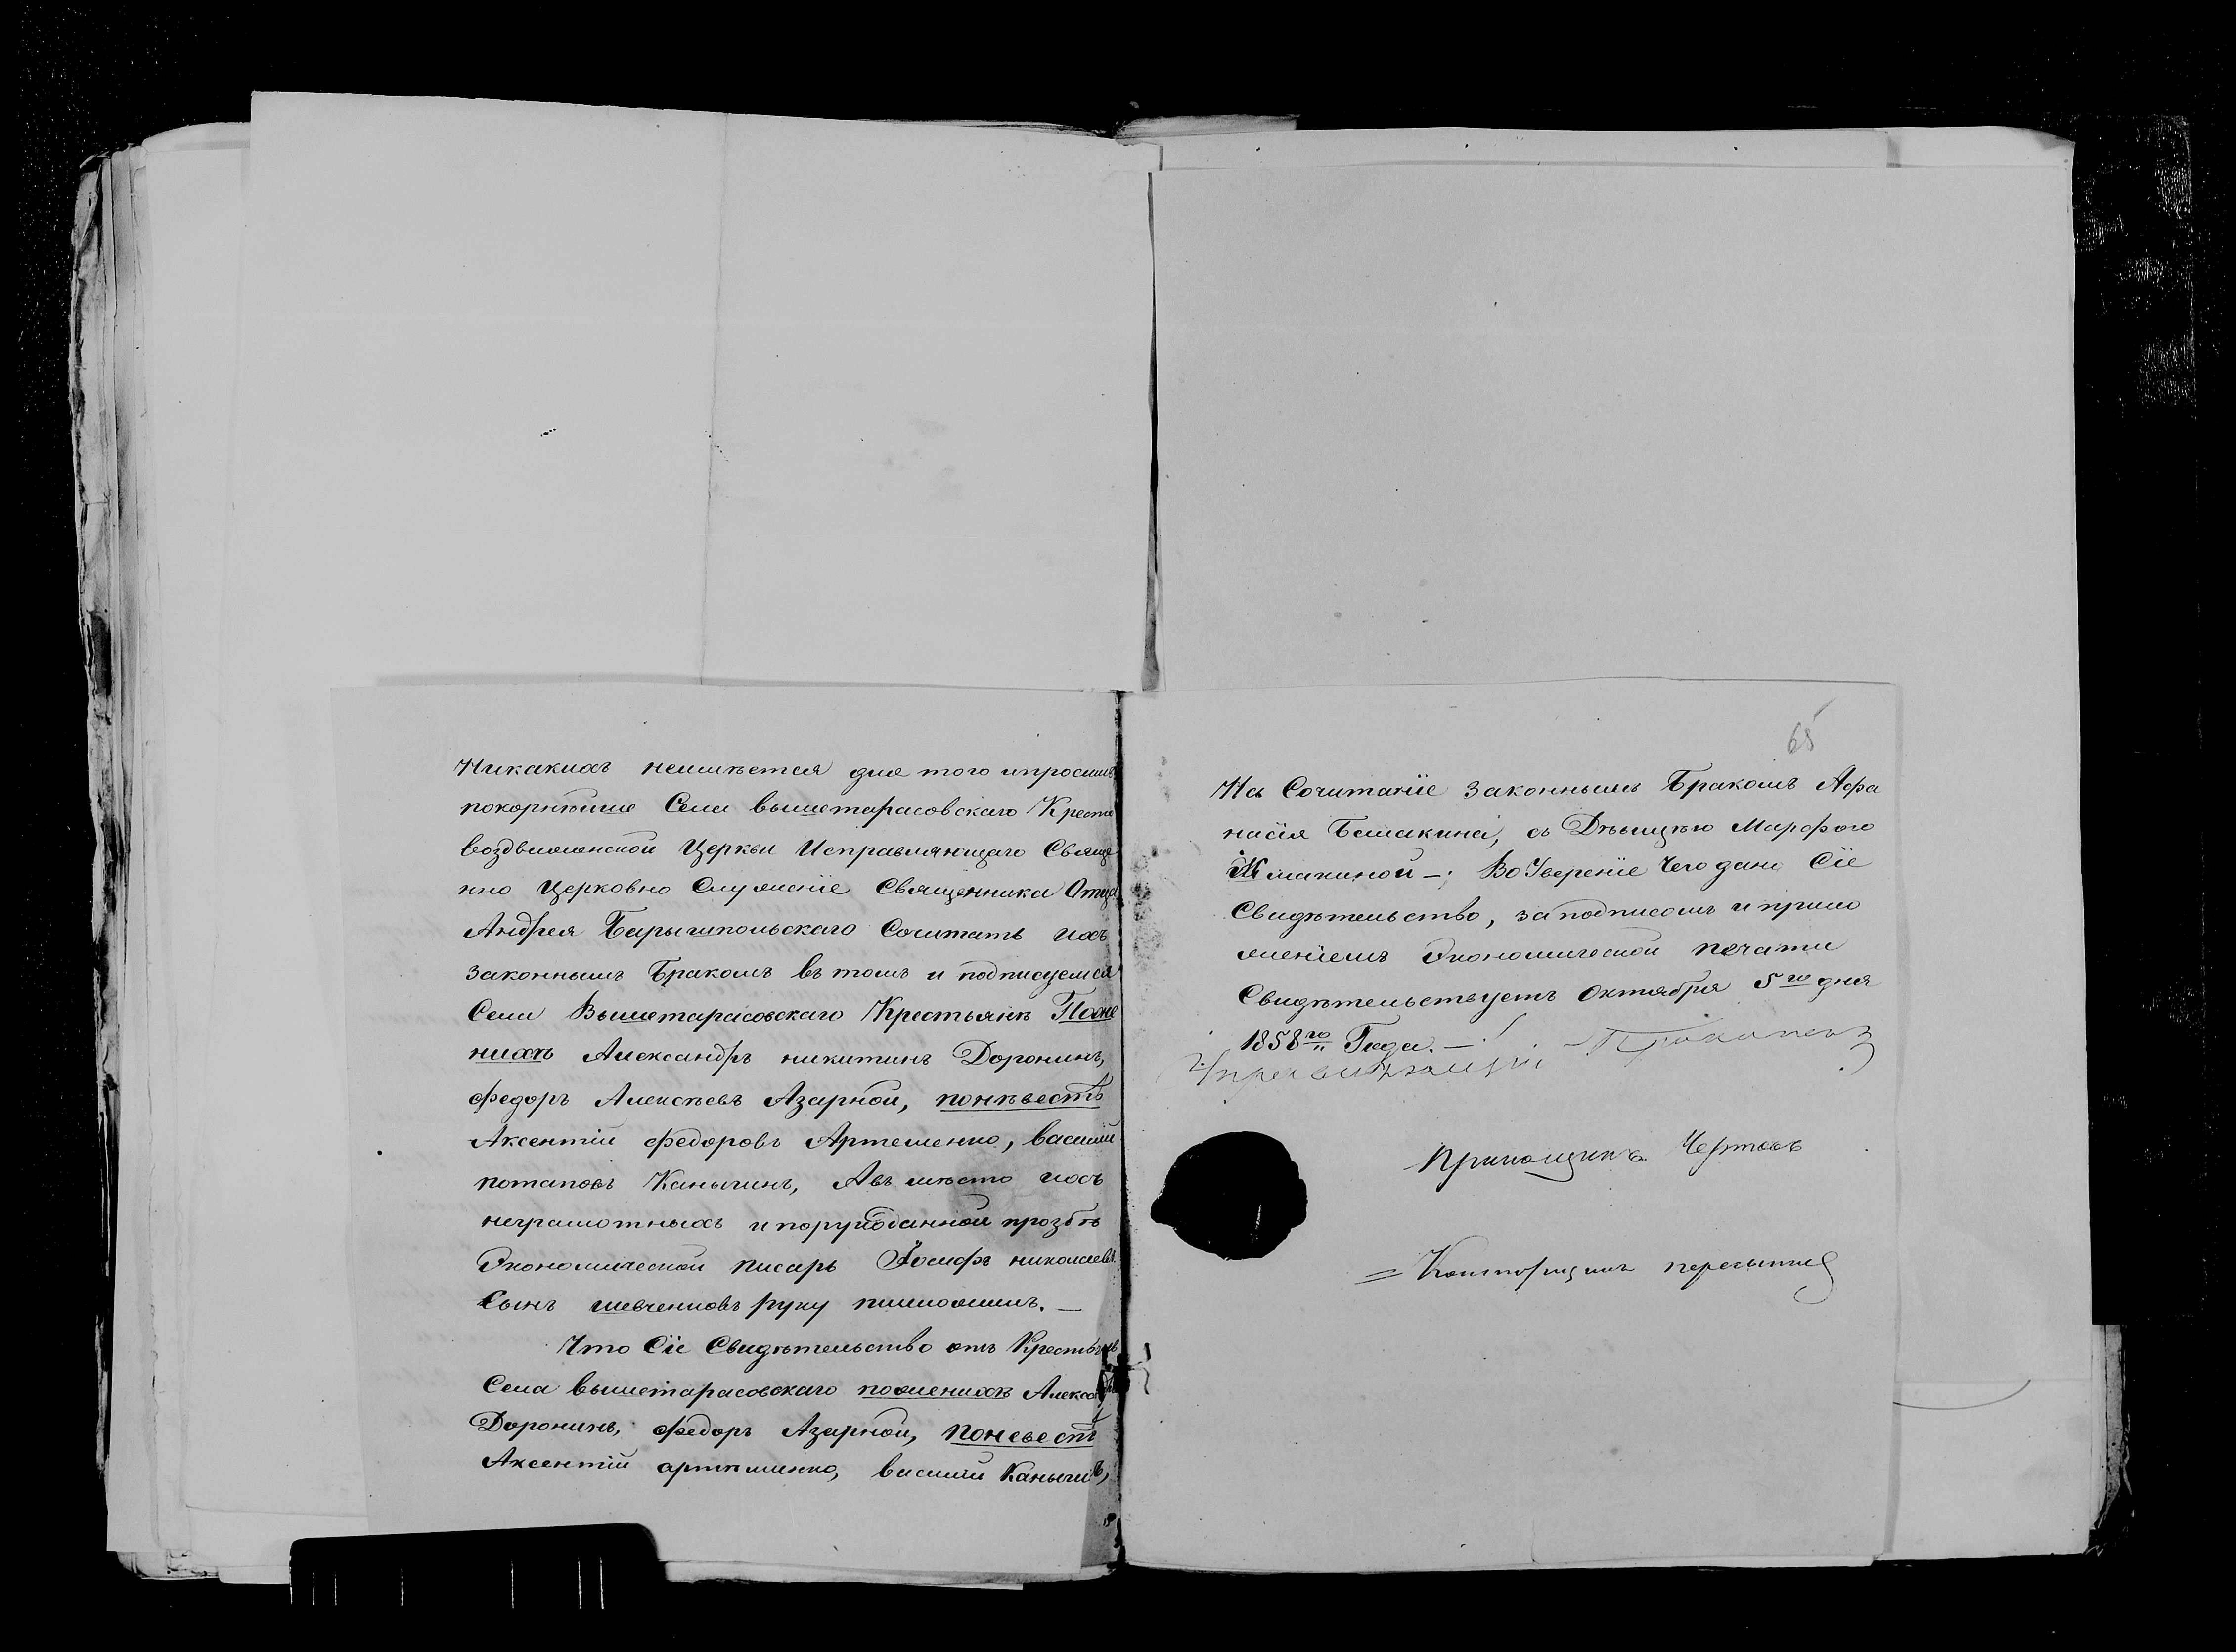 Никакихъ неимѣется для того ипросимъ
покорнѣише Села вышетарасовскаго Кресто
воздвиженской Церкви Исправляющаго Свяще
нно Церковно Служеніе Священника Отца
Андрея Барышпольскаго Сочитать ихъ
законнымъ Бракомъ въ томъ и подписуемся
Села Вышетарасовскаго Крестьянѣ Пожe
нихѣ Александръ никитинъ Доронинъ,
Федоръ Алексѣевъ Азарной, понѣвестѣ
Аксентій Федоровъ Артеменко, василій
потаповъ Каныгинъ, Авъ мѣсто ихъ
неграмотныхъ и порукоданной прозбѣ
Экономической писарь Іосифъ николаевъ
Сынъ шевченковъ руку приложилъ. —
Что Сіе Свидѣтельство отъ Крестьянъ
Села вышетарасовскаго поженихѣ Александръ
Доронинъ, Федоръ Азарной, поневестѣ
Аксентій артѣменко, василій Каныгинъ,
65
На Сочитаніе законнымъ Бракомъ Афа
насія Башакина, съ Дѣвицѣю Марфою
Жмакиной —; Во Увереніе Чего дано Сіе
Свидѣтельство, за подписомъ и прило
женіемъ Экономической печати
Свидѣтельствуетъ Октября 5го дня
1858го Года. —
Управляющій
Прикащикъ Чертовъ
= Конторщикъ